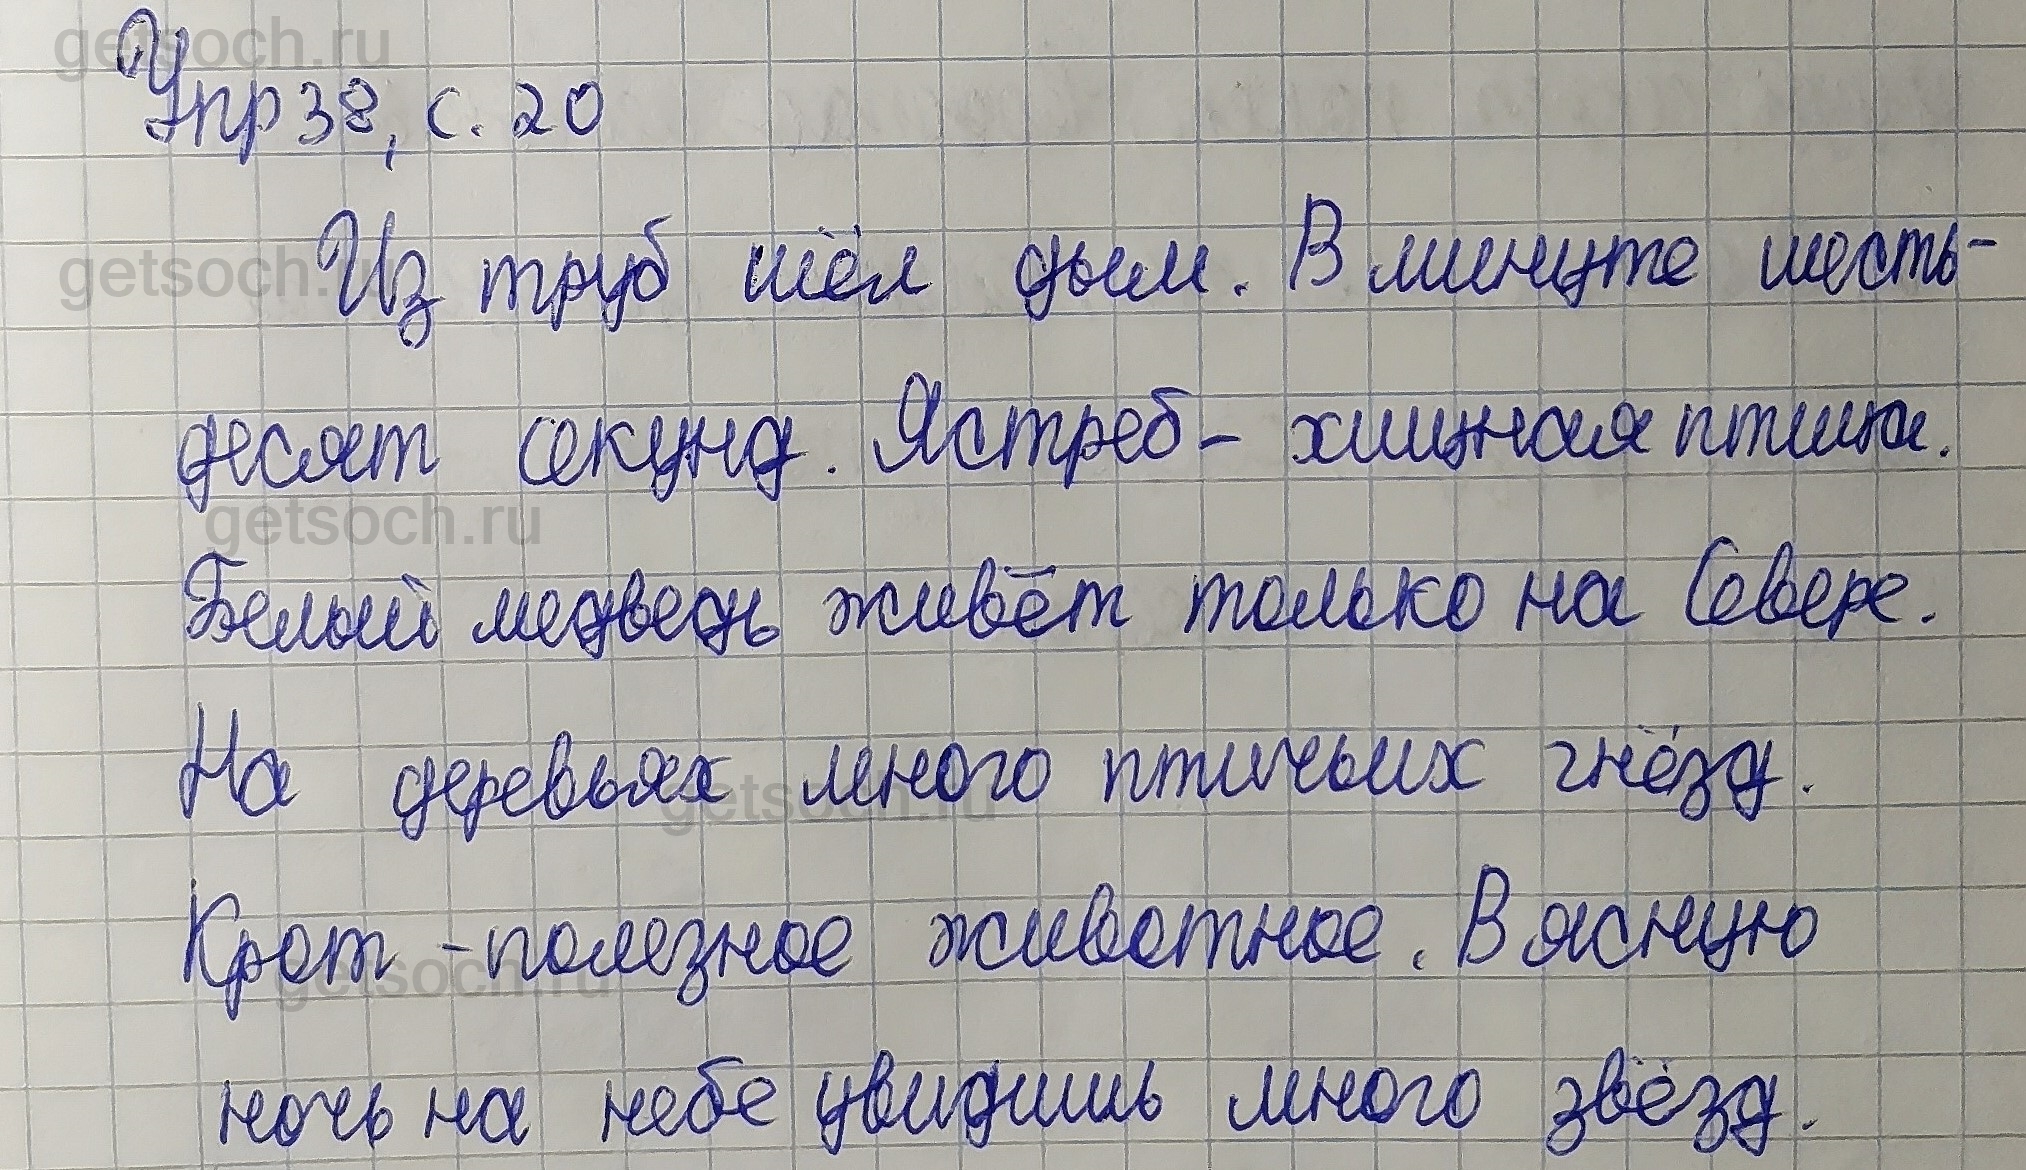 getsoch.ru
Упр 38, с. 20
Из труб шёл дым. В минуте шесть-
getsoch.ru
десят секунд. Ястреб - хищная птица.
getsoch.ru
Белый медведь живёт только на Севере.
На деревьях много птичьих гнёзд.
getsoch.ru
Крот - полезное животное. В ясную
getsoch.ru
ночь на небе увидишь много звёзд.